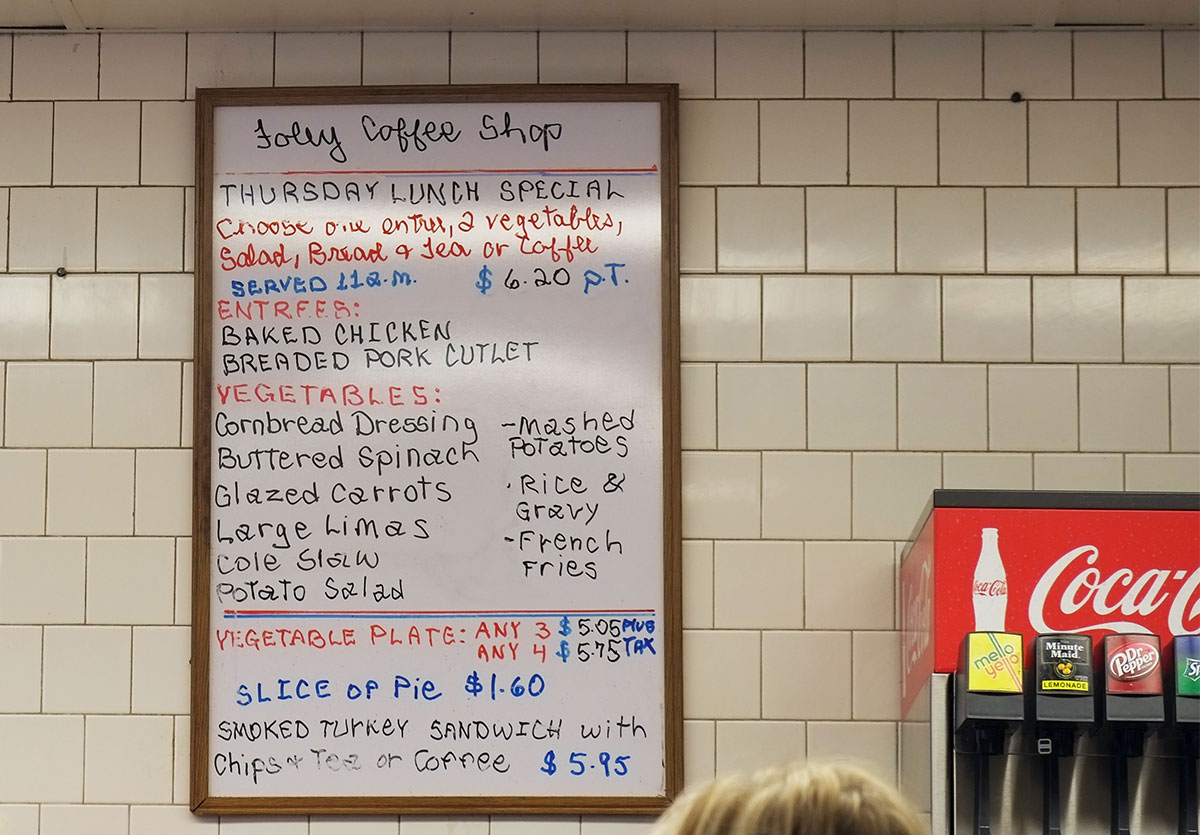 Foley Coffee Shop
THURSDAY LUNCH SPECIAL
Choose one entree, 2 vegetables,
Salad, Bread & Tea or Coffee
SERVED 11a.m. $6.20 p.T.
ENTREES:
BAKED CHICKEN
BREADED PORK CUTLET
VEGETABLES:
Cornbread Dressing
Buttered Spinach
Glazed Carrots
Large Limas
Cole Slaw
Potato Salad
- Mashed
Potatoes
· Rice &
Gravy
- French
Fries
VEGETABLE PLATE: ANY 3 $5.05 PLUS
ANY 4 $5.75 TAX
SLICE OF Pie $1.60
SMOKED TURKEY SANDWICH with
Chips & Tea or Coffee $5.95
Coca-Cola
Coca-C
mello
yello
Minute
Maid
LEMONADE
Dr
Pepper